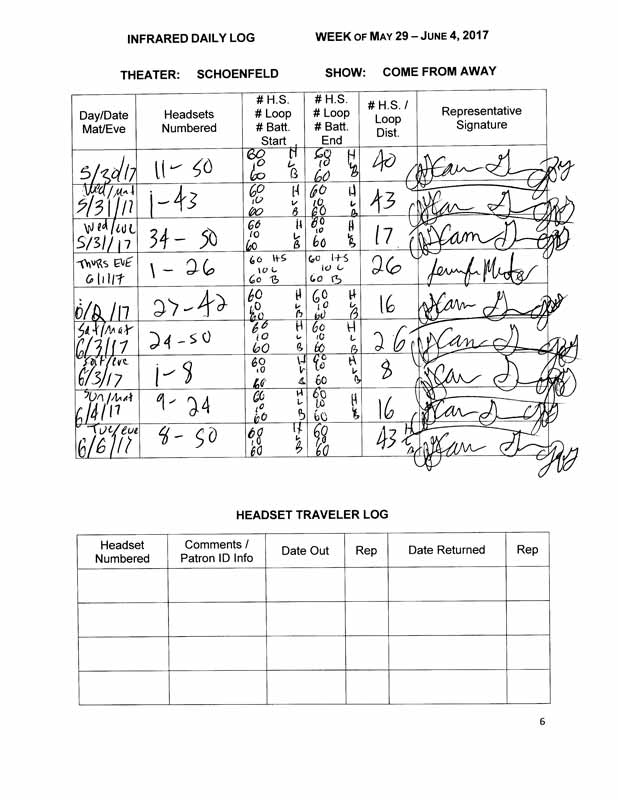 INFRARED DAILY LOG WEEK OF MAY 29 – JUNE 4, 2017
THEATER: SCHOENFELD SHOW: COME FROM AWAY
Day/Date Mat/Eve Headsets Numbered # H.S. # Loop # Batt. Start # H.S. # Loop # Batt. End # H.S. / Loop Dist. Representative Signature
5/30/17 11-50 60 H 10 L 60 B 60 H 10 L 60 B 40
Wed/mat 5/31/17 1-43 60 H 10 L 60 B 60 H 10 L 60 B 43
Wed/eve 5/31/17 34-50 60 H 10 L 60 B 60 H 10 L 60 B 17
THURS EVE 6/1/17 1-26 60 HS 10 L 60 B 60 HS 10 L 60 B 26
6/2/17 27-42 60 H 10 L 60 B 60 H 10 L 60 B 16
Sat/mat 6/3/17 24-50 60 H 10 L 60 B 60 H 10 L 60 B 26
Sat/eve 6/3/17 1-8 60 H 10 L 60 B 60 H 10 L 60 B 8
Sun/mat 6/4/17 9-24 60 H 10 L 60 B 60 H 10 L 60 B 16
Tue/eve 6/6/17 8-50 60 H 10 L 60 B 60 10 60 43 H
HEADSET TRAVELER LOG
Headset Numbered Comments / Patron ID Info Date Out Rep Date Returned Rep
6